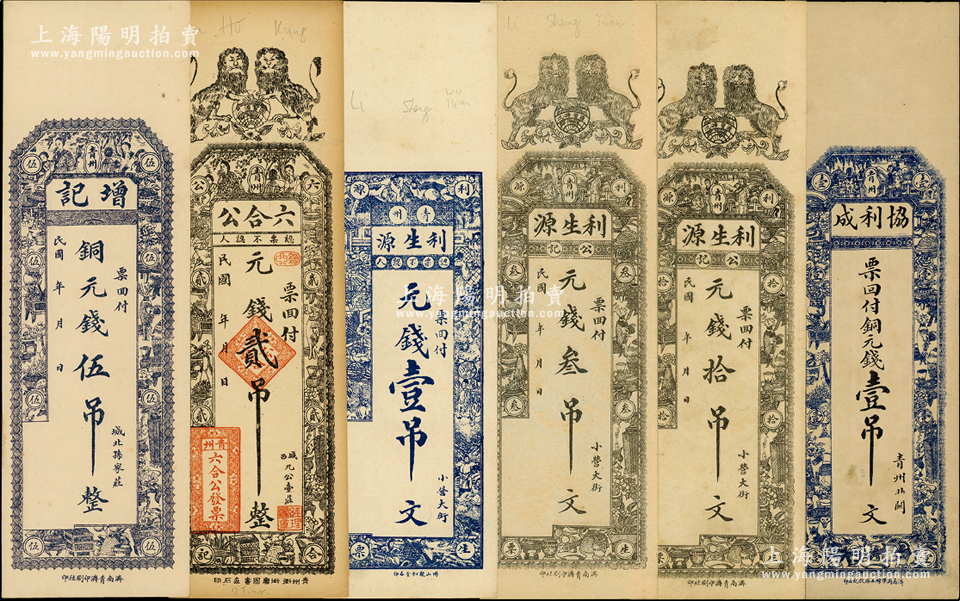 上海陽明拍賣
www.yangmingauction.com
青州
伍 伍
增記
票回付
銅元錢伍吊整
民國 年 月 日
城北孫家莊
伍 伍
濟南青濟印刷社印
Ho Kung
青州
六 公
六合公
認票不認人
票回付
元錢貳吊整
民國 年 月 日
貳 貳
青州
六合公發票
合 記
Li Sheng Yuan
利 源
青州
利生源
認票不認人
票回付
元錢壹吊文
小營大街
生 票
Li Sheng Yuan
青州
利 源
利生源
公記
票回付
元錢叁吊文
民國 年 月 日
小營大街
叁 叁
生 票
濟南青濟印刷社印
青州
利 源
利生源
公記
票回付
元錢拾吊文
民國 年 月 日
小營大街
拾 拾
生 票
濟南青濟印刷社印
青州
壹 壹
協利成
票回付銅元錢壹吊文
青州北關
上海陽明拍賣
www.yangmingauction.com
上海陽明拍賣
www.yangmingauction.com